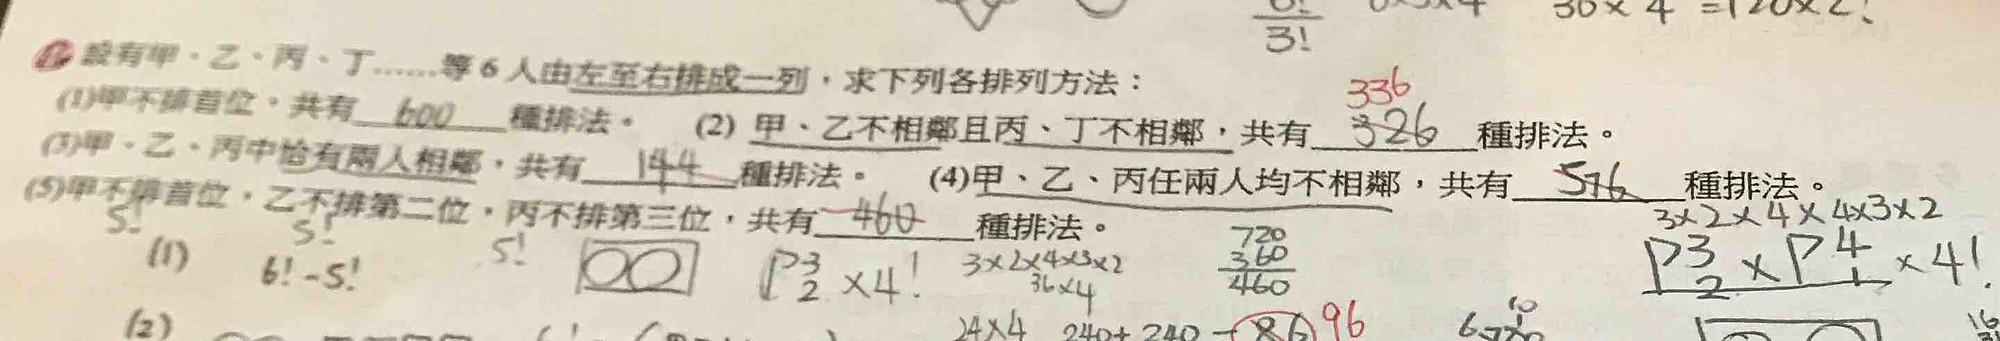 3!
30×4 =120×2!
設有甲、乙、丙、丁……等6人由左至右排成一列，求下列各排列方法：
(1)甲不排首位，共有 600 種排法。 (2) 甲、乙不相鄰且丙、丁不相鄰，共有 336 326 種排法。
(3)甲、乙、丙中恰有兩人相鄰，共有 144 種排法。 (4)甲、乙、丙任兩人均不相鄰，共有 576 種排法。
(5)甲不排首位，乙不排第二位，丙不排第三位，共有 460 種排法。
3×2×4×4×3×2
5! 5! 5!
(1) 6!-5! P 3 2 ×4! 3×2×4×3×2 720 P 3 2 × P 4 1 ×4!
36×4 360
460
(2) 24×4 240+240-86 96